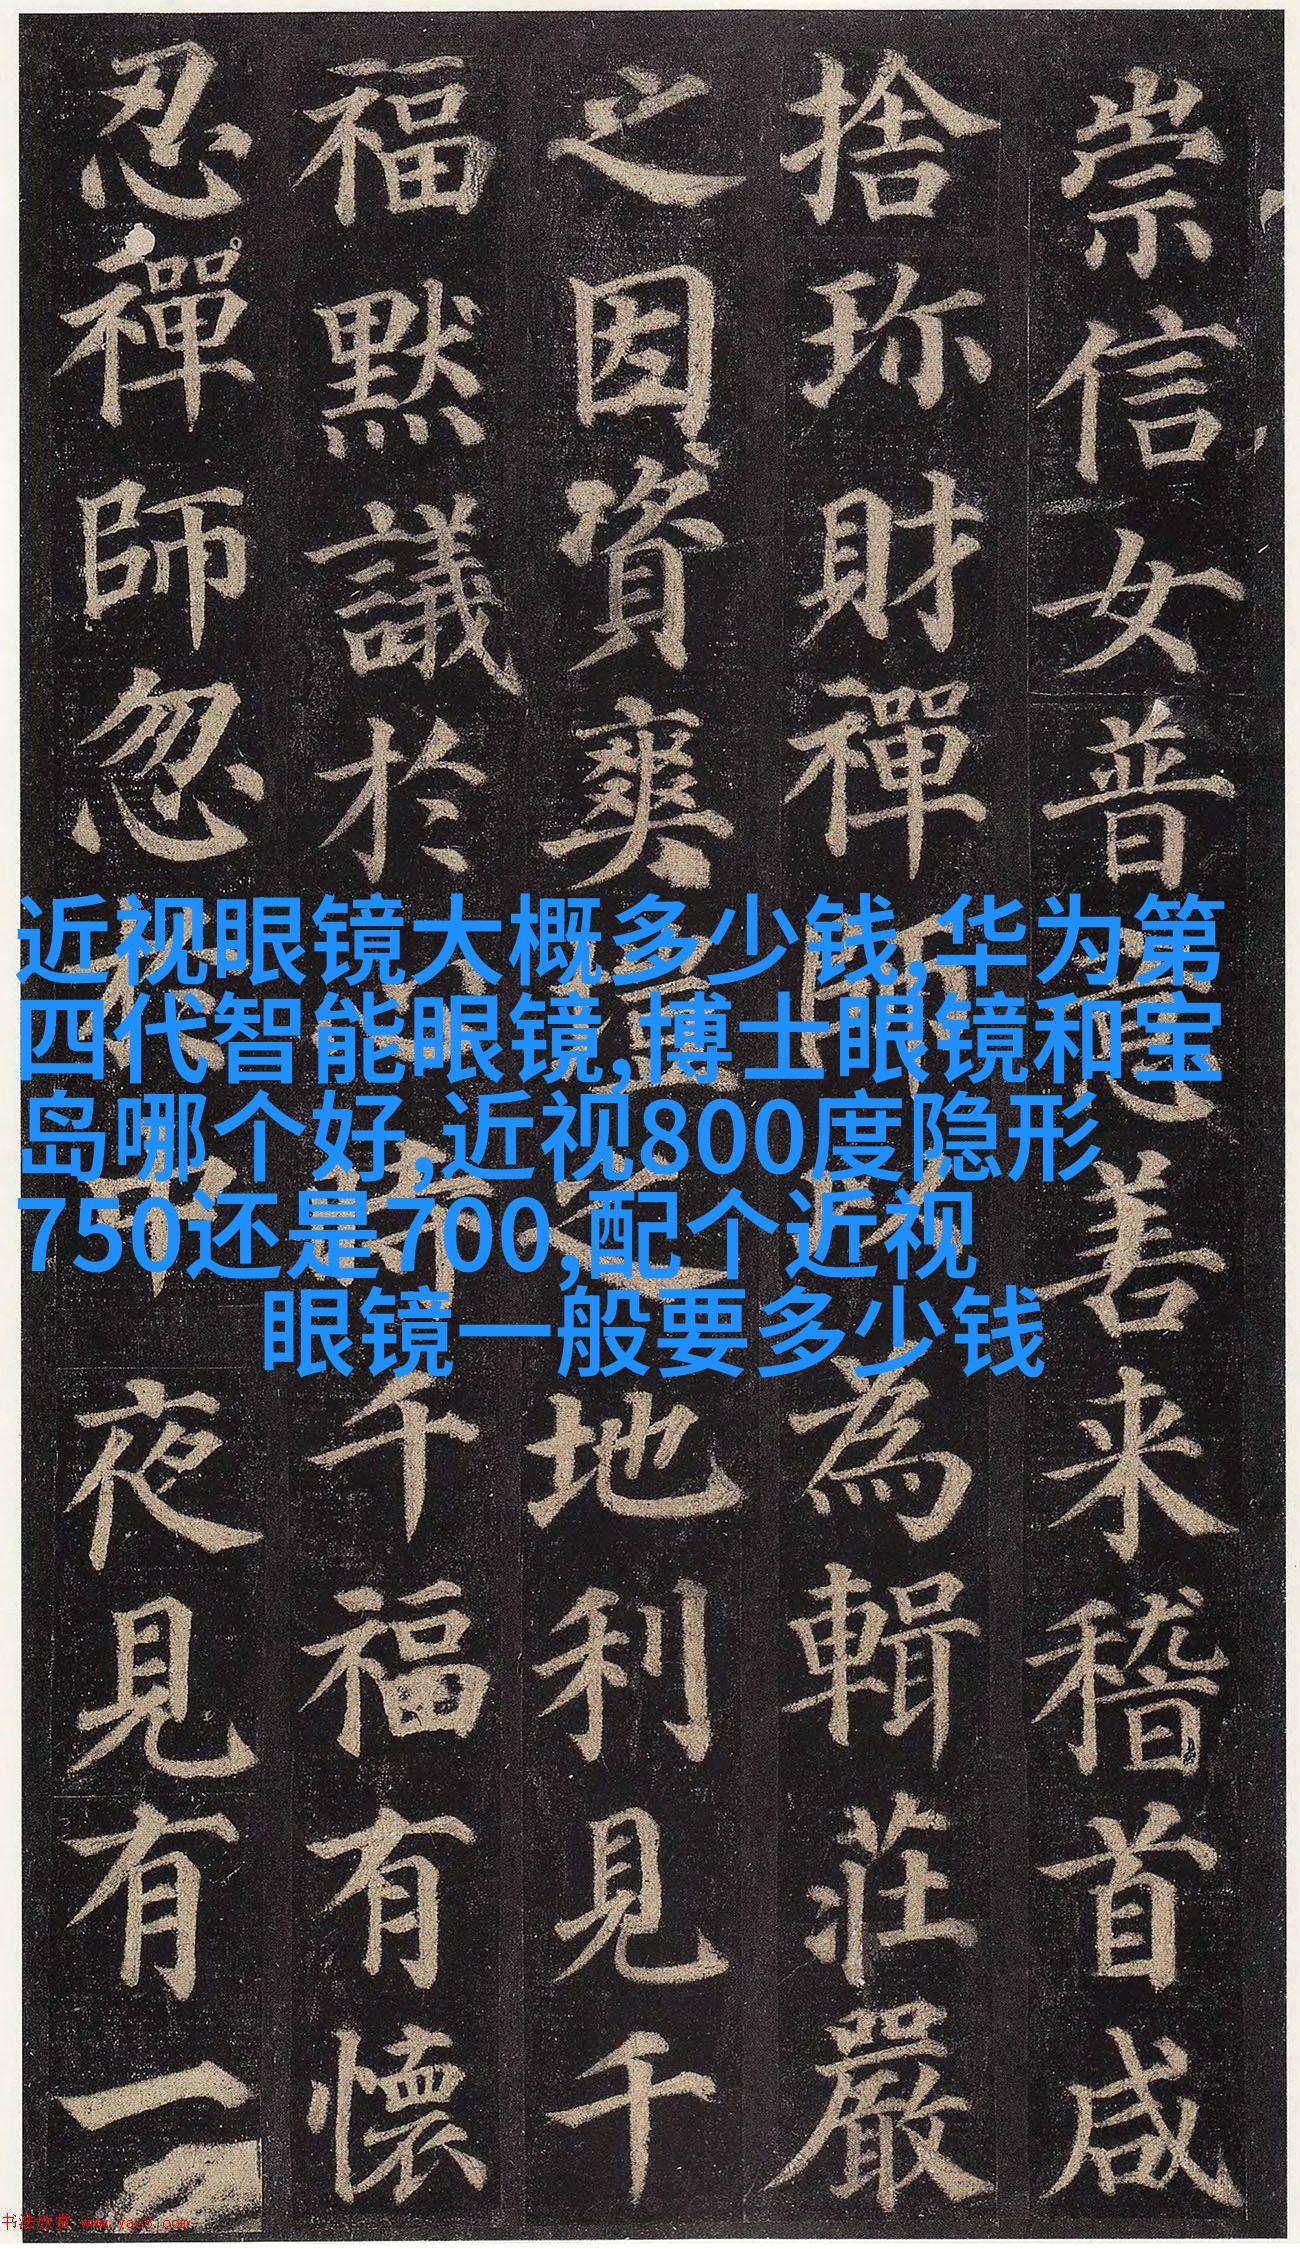 崇信女普意善来稽首咸
捨珎財禪師以為輯莊嚴
之因資爽塏之地利見千
福默議於心時千福有懷
忍禪師忽於中夜見有一
近视眼镜大概多少钱,华为第
四代智能眼镜,博士眼镜和宝
岛哪个好,近视800度隐形
750还是700,配个近视
眼镜一般要多少钱
书法欣赏 www.yac8.com